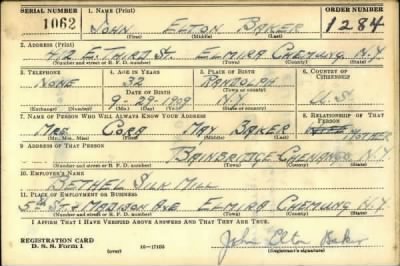 SERIAL NUMBER 1. NAME (Print) ORDER NUMBER
1062 JOHN ELTON BAKER 1284
(First) (Middle) (Last)
2. ADDRESS (Print)
412 E. THIRD ST. ELMIRA CHEMUNG N.Y.
(Number and street or R. F. D. number) (Town) (County) (State)
3. TELEPHONE 4. AGE IN YEARS 5. PLACE OF BIRTH 6. COUNTRY OF CITIZENSHIP
NONE 32 RANDOLPH
DATE OF BIRTH (Town or county)
9-29-1909 N.Y. U.S.
(Exchange) (Number) (Mo.) (Day) (Yr.) (State or country)
7. NAME OF PERSON WHO WILL ALWAYS KNOW YOUR ADDRESS 8. RELATIONSHIP OF THAT PERSON
MRS. CORA MAY BAKER MOTHER
(Mr., Mrs., Miss) (First) (Middle) (Last)
9. ADDRESS OF THAT PERSON
BAINBRIDGE CHENANGO N.Y.
(Number and street or R. F. D. number) (Town) (County) (State)
10. EMPLOYER'S NAME
BETHEL SILK MILL
11. PLACE OF EMPLOYMENT OR BUSINESS
5TH ST. & MADISON AVE ELMIRA CHEMUNG N.Y.
(Number and street or R. F. D. number) (Town) (County) (State)
I AFFIRM THAT I HAVE VERIFIED ABOVE ANSWERS AND THAT THEY ARE TRUE.
REGISTRATION CARD
D. S. S. Form 1 (over) 16-17105 John Elton Baker
(Registrant's signature)